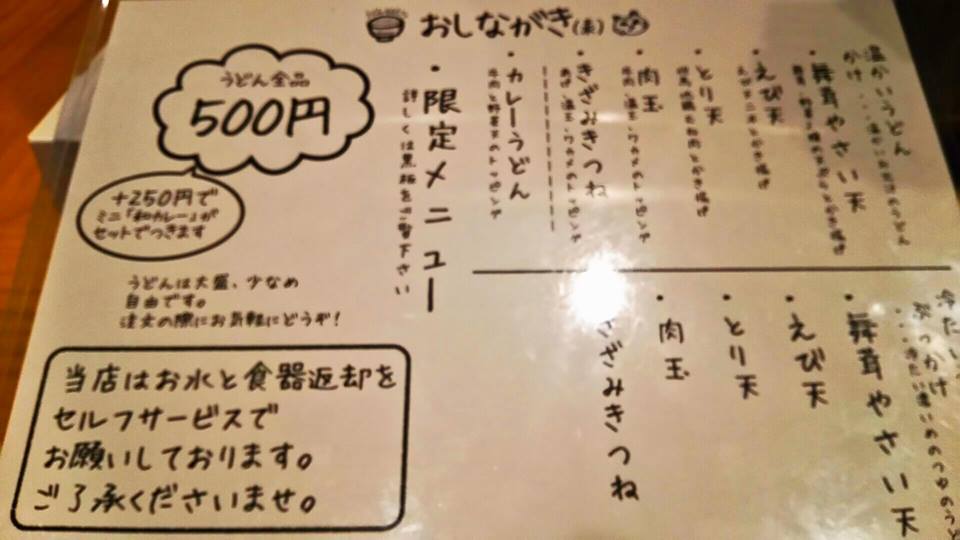 おしながき(表)
温かいうどん
かけ
・舞茸やさい天
・えび天
えび天二本とかき揚げ
・とり天
・肉玉
牛肉、温玉、ワカメのトッピング
・きざみきつね
あげ、温玉、ワカメのトッピング
・カレーうどん
牛肉と野菜のトッピング
・限定メニュー
詳しくは黒板をご覧下さい
うどん全品
500円
+250円で
ミニ「和カレー」が
セットでつきます
うどんは大盛、少なめ
自由です。
注文の際にお気軽にどうぞ!
当店はお水と食器返却を
セルフサービスで
お願いしております。
ご了承くださいませ。
冷たい
ぶっかけ
・舞茸やさい天
・えび天
・とり天
・肉玉
きざみきつね